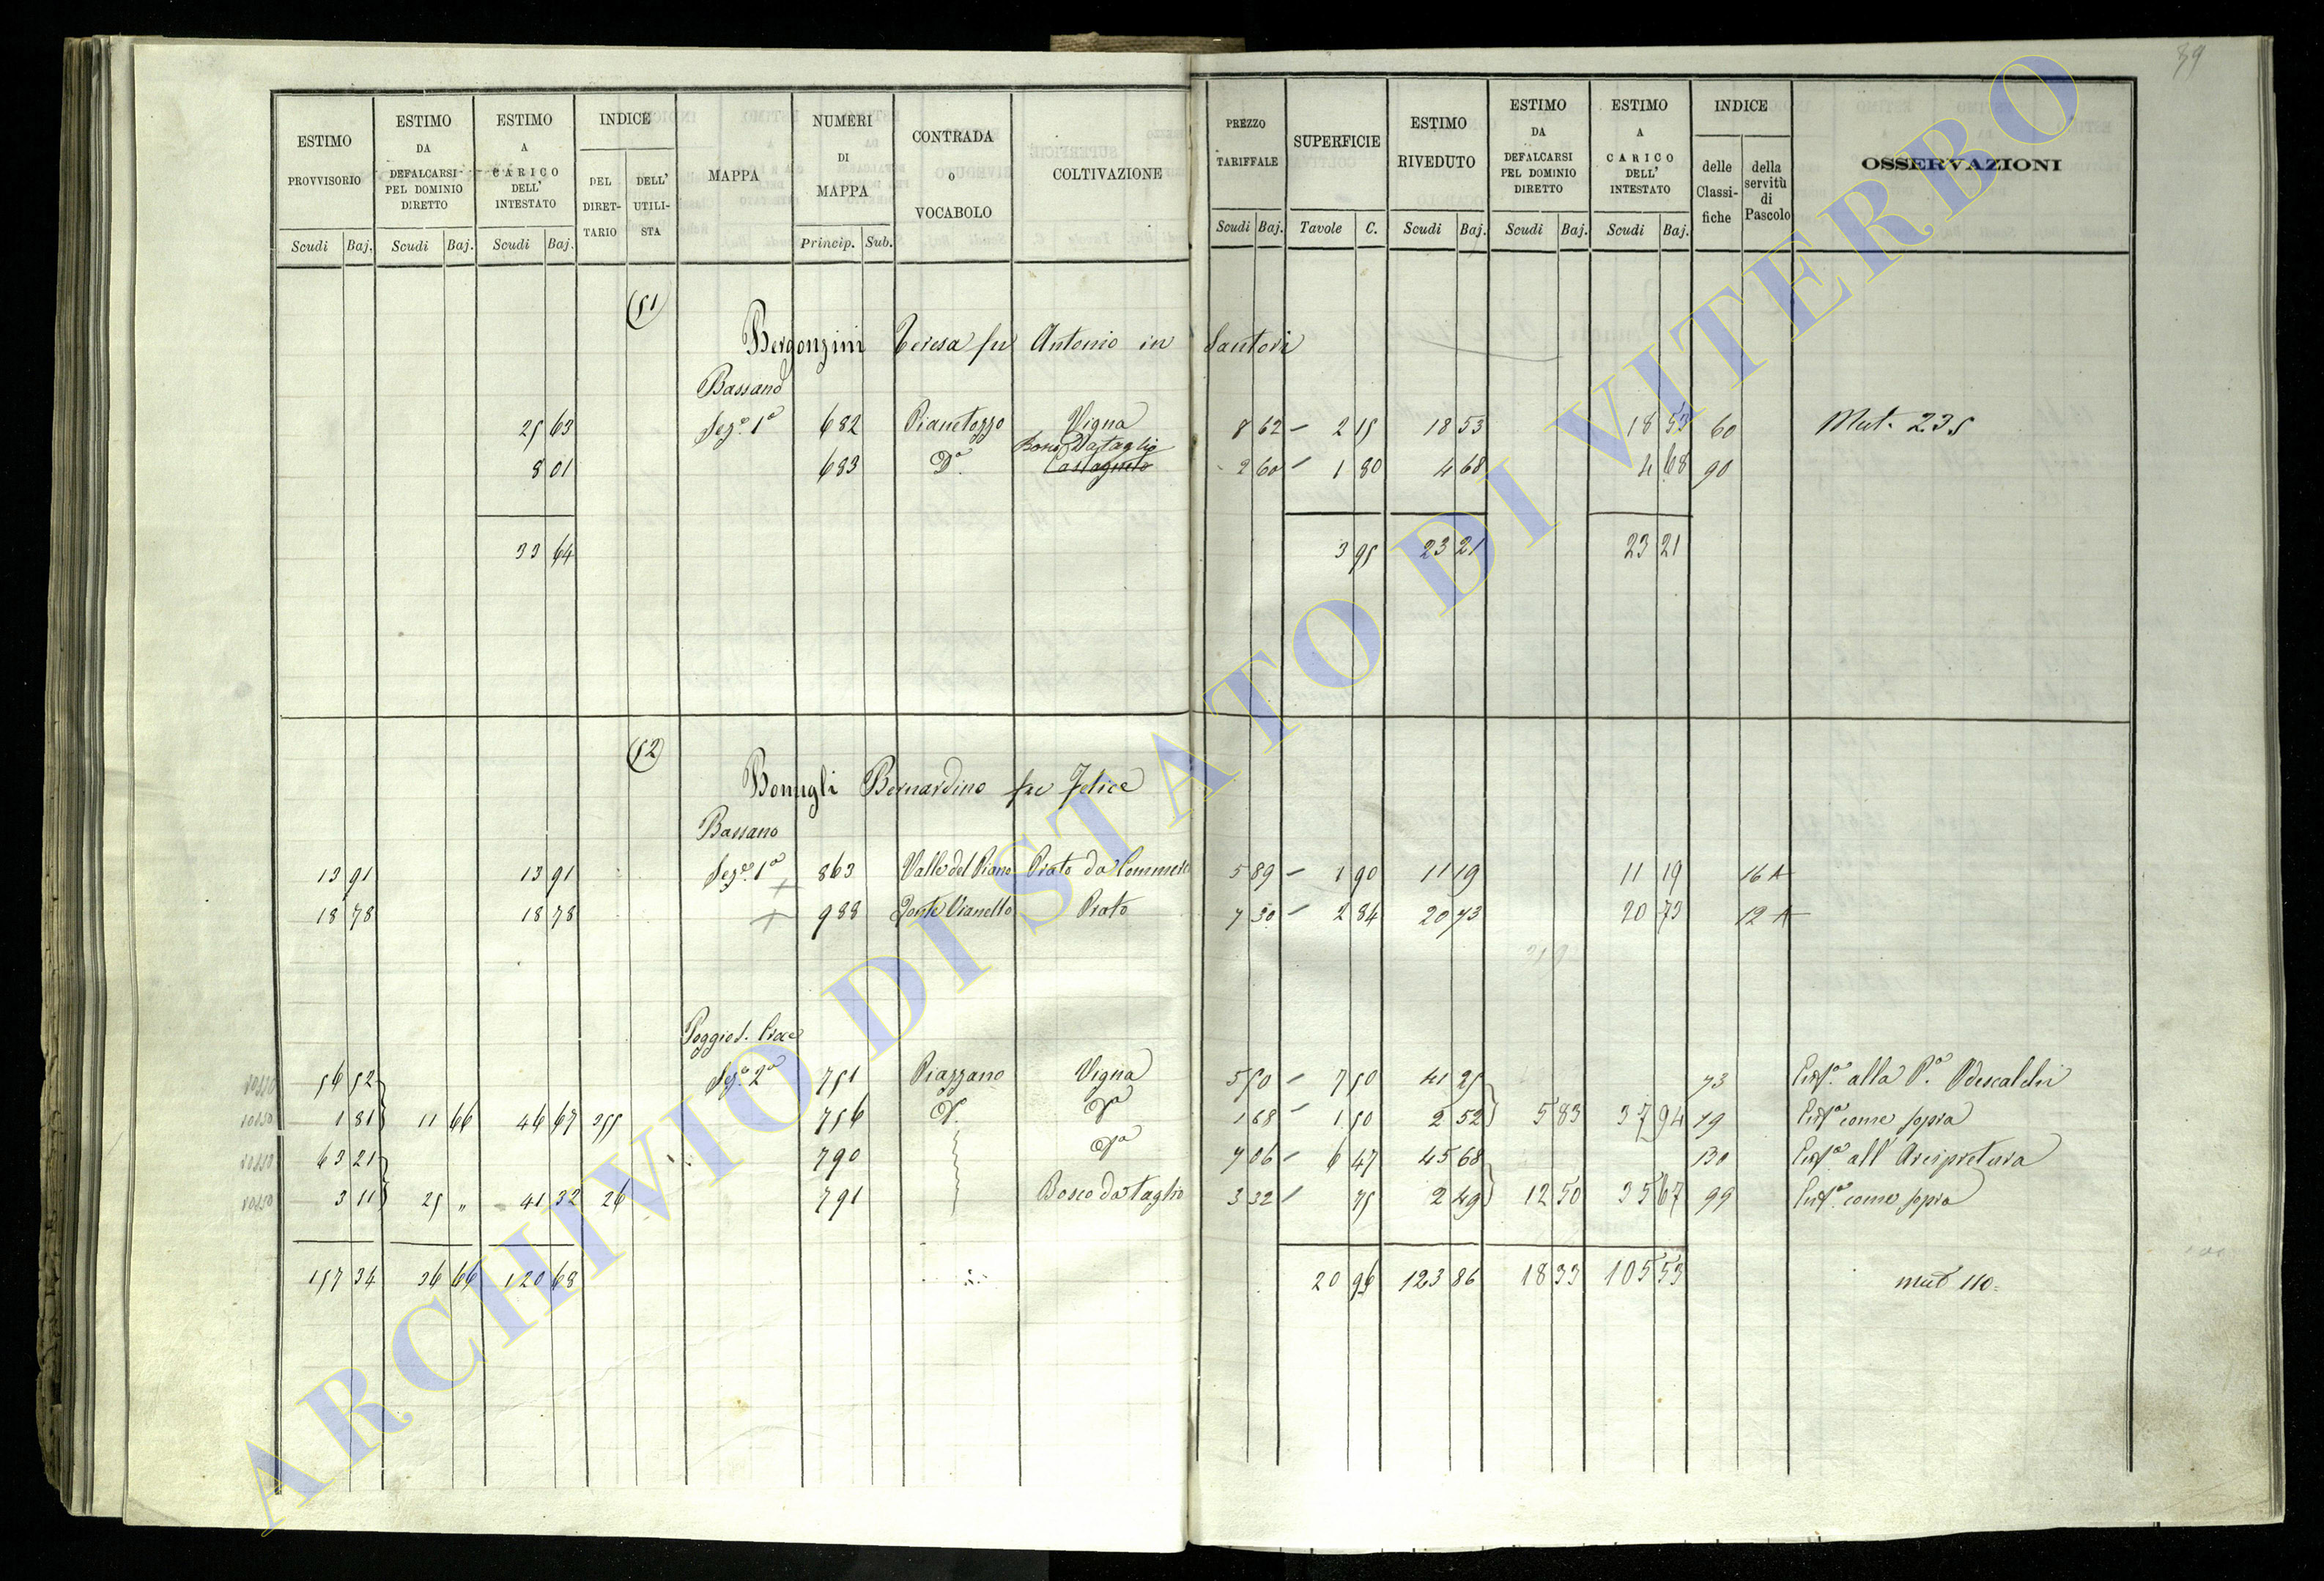 39
ESTIMO PROVVISORIO
ESTIMO DA DEFALCARSI PEL DOMINIO DIRETTO
ESTIMO A CARICO DELL' INTESTATO
INDICE
DEL DIRET- TARIO
DELL' UTILI- STA
MAPPA
NUMERI DI MAPPA
CONTRADA o VOCABOLO
COLTIVAZIONE
PREZZO TARIFFALE
SUPERFICIE
ESTIMO RIVEDUTO
ESTIMO DA DEFALCARSI PEL DOMINIO DIRETTO
ESTIMO A CARICO DELL' INTESTATO
INDICE
delle Classi- fiche
della servitù di Pascolo
OSSERVAZIONI
Scudi Baj. Scudi Baj. Scudi Baj. Princip. Sub. Scudi Baj. Tavole C. Scudi Baj. Scudi Baj. Scudi Baj.
51
Bergonzini Teresa fu Antonio in Santori
Bassano
25 63 Sez.e 1a 682 Pianetozzo Vigna 8 62 – 2 15 18 53 18 53 60 Mut. 235
Bosco Da taglio
8 01 683 Do. Castagneto 2 60 – 1 80 4 68 4 68 90
33 64 3 95 23 21 23 21
52
Bonugli Bernardino fu Felice
Bassano
13 91 13 91 Sez.e 1a 863 Valle del Piano Prato da 5 89 – 1 90 11 19 11 19 16 A
18 78 18 78 + 988 Vianello Prato 7 30 – 2 84 20 73 20 73 12 A
Poggio S.
56 52 Sez.e 2a 751 Piazzano Vigna 5 50 – 7 50 41 25 73 Enf.a alla P.a Odescalchi
1 81 11 66 46 67 255 756 Do Da 1 68 – 1 50 2 52 5 83 37 94 79 Enf.a come sopra
63 21 790 Da 7 06 – 6 47 45 68 130 Enf.a all' Arcipretura
3 11 25 „ 41 32 26 791 Bosco da taglio 3 32 – 75 2 49 12 50 35 67 99 Enf.a come sopra
157 34 36 66 120 68 20 96 123 86 18 33 105 53 mut 110
ARCHIVIO DI STATO DI VITERBO